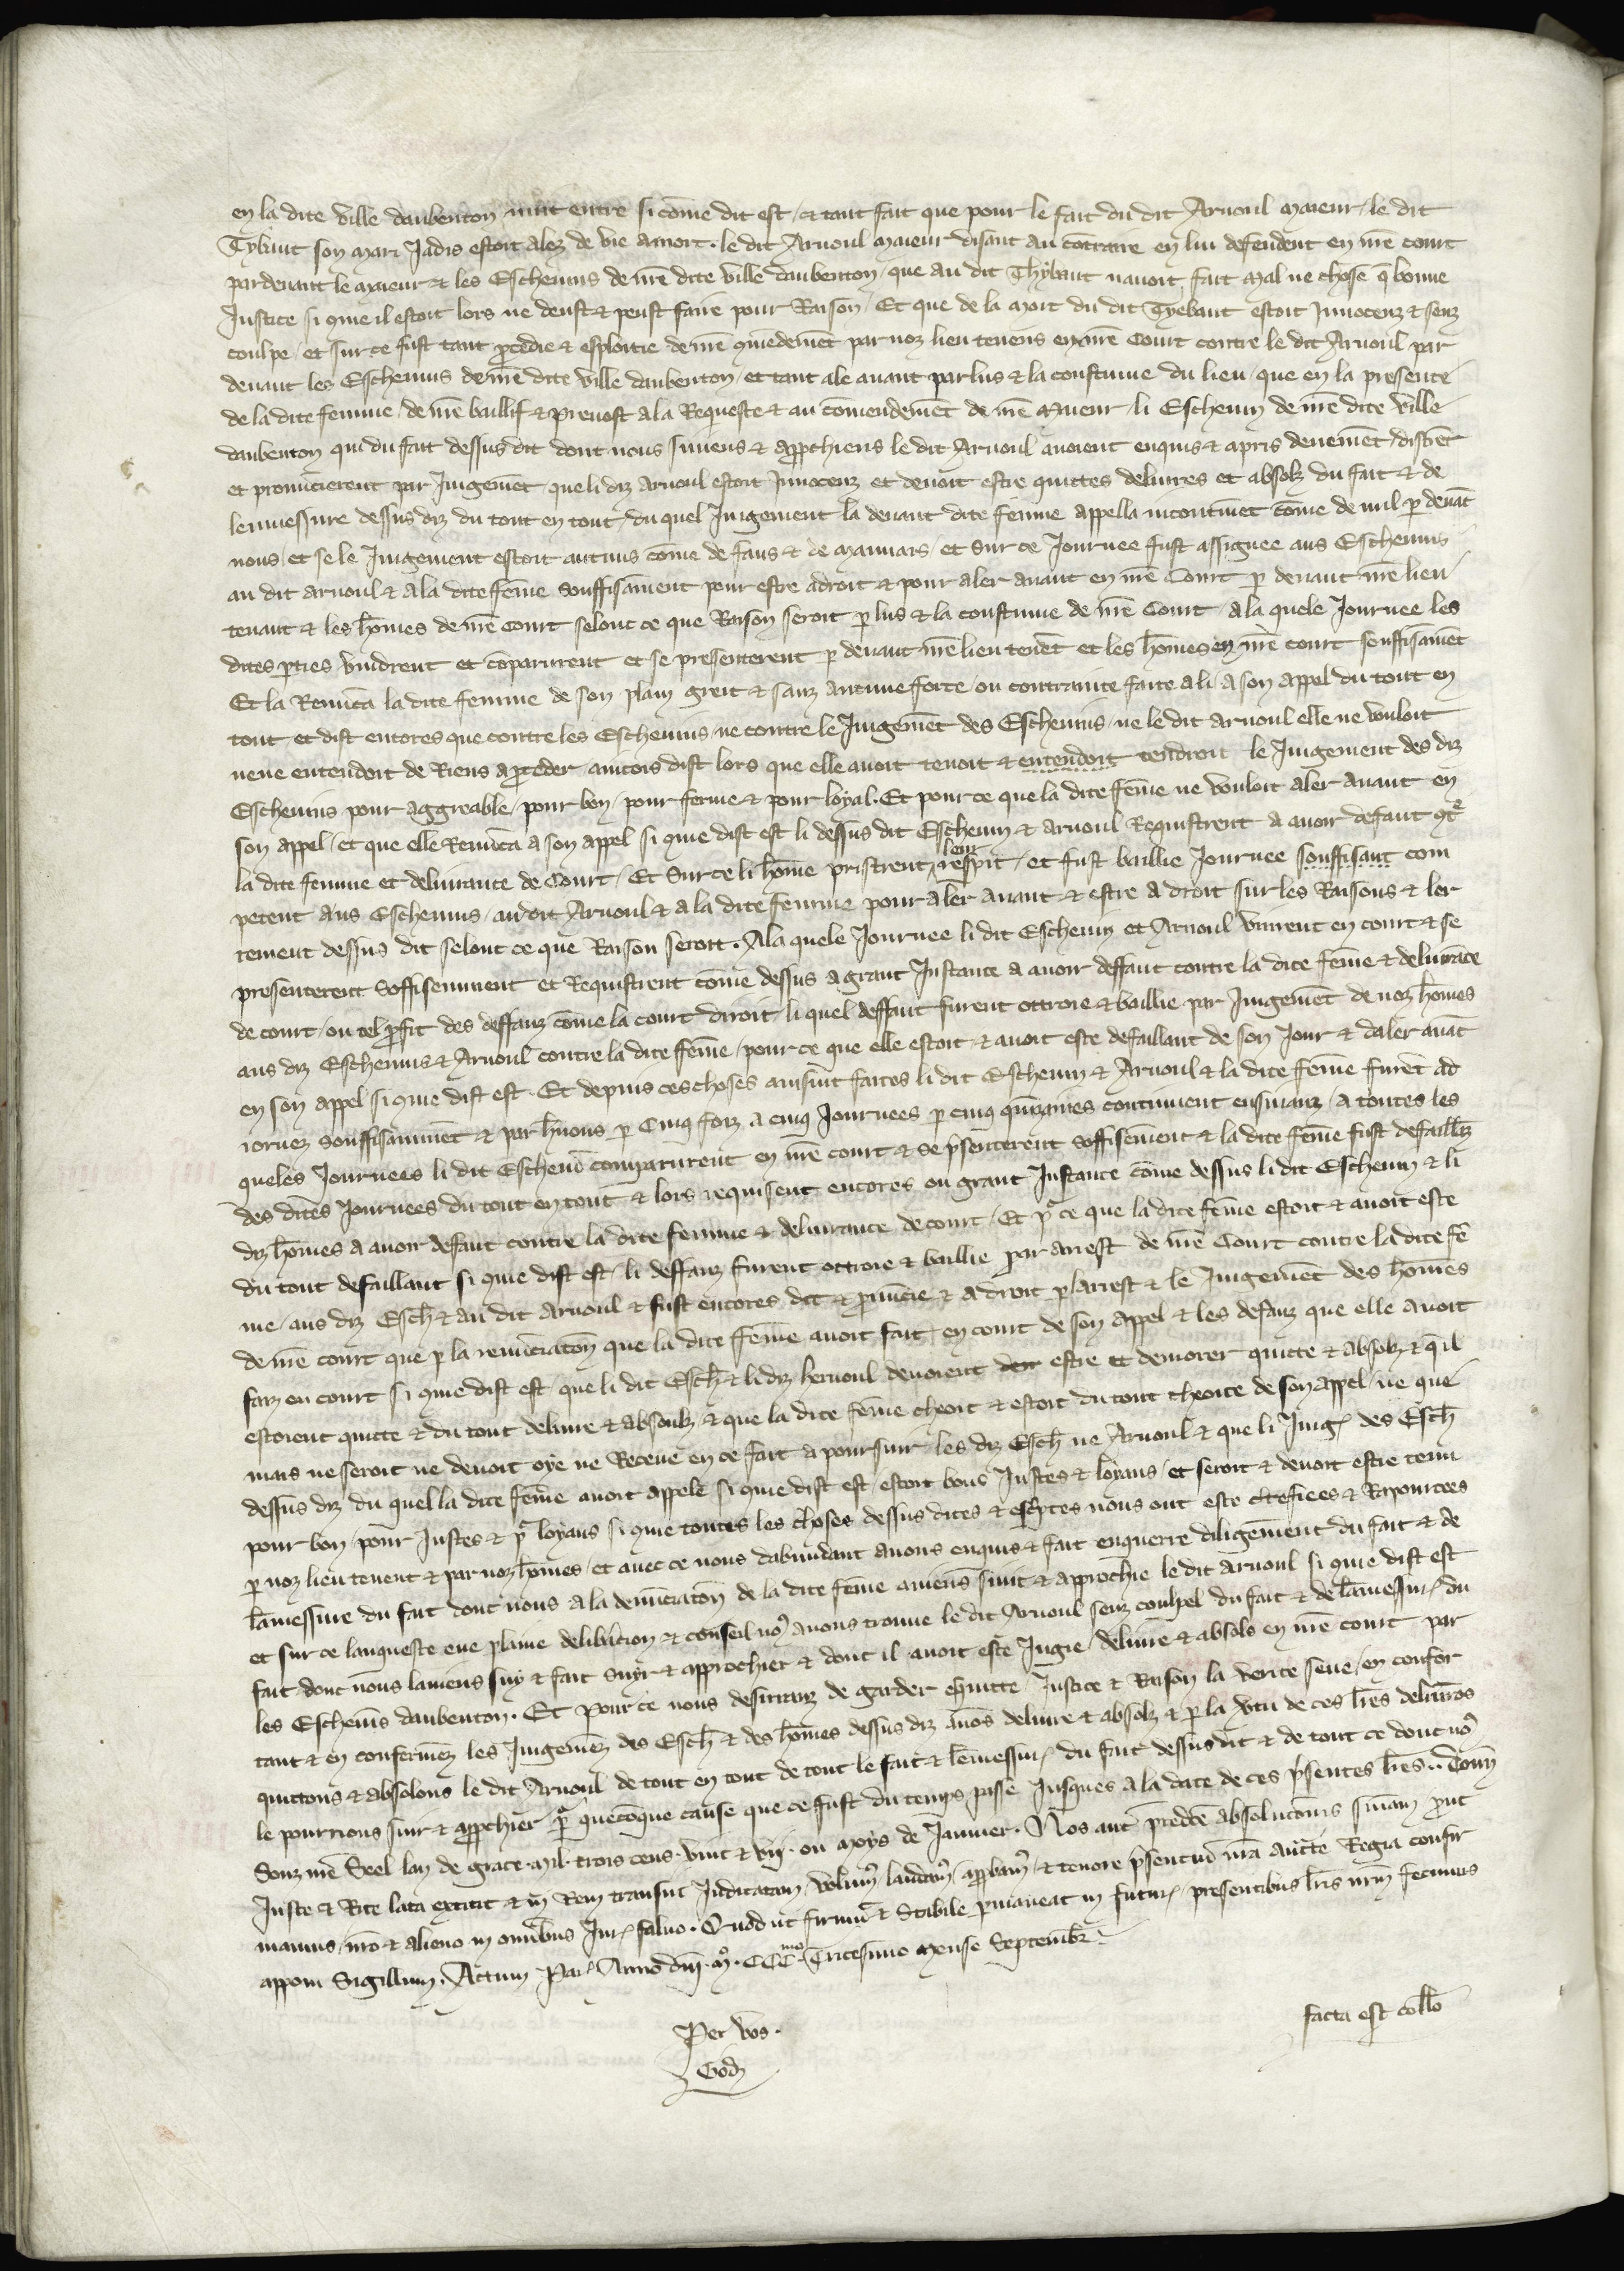 en la dite ville daubenton nuit entre si cōme dit est / et tant fait que pour le fait du dit Arnoul maieur / le dit
Tybaut son mari Jadis estoit alez de vie a mort . le dit Arnoul maieur disant au cōtraire en lui defendent en nrē court
pardeuant le maieur & les Escheuins de nrē dite ville daubenton / que au dit Thybaut nauoit fait mal ne chose q̄ bonne
Justice si qme il estoit lors ne deust & peust faire pour Raison / Et que de la mort du dit Tyebaut estoit Jnnocenz & senz
coulpe / et sur ce fust tant ꝓcedie & esploitie de nrē qmēdemēt par noz lieu tenens en nrē Court contre le dit Arnoul par
deuant les Escheuins de nrē dite ville daubenton / et tant ale auant par lus & la coustume du lieu / que en la presente
de la dite femme / de nrē baillif & preuost a la Requeste & au cōmendemēt de nrē Maieur / li Escheuin de nrē dite ville
daubenton qui du fait dessus dit dont nous suiuens & apꝓchiens le dit Arnoul auoient enquis & apris deuemēt / distrēt
et pronūcierent par Jugemēt que li diz Arnoul estoit Jnnocenz et deuoit estre quittes deliures et absolz du fait & de
lenuessure dessus diz du tout en tout / du quel Jugement la deuant dite fēme appella incontinēt cōme de nul ꝑ deuāt
nous / et se le Jugement estoit aucuns cōme de faus & de mauuais / et sur ce Journee fust assignee aus Escheuins
au dit arnoul & a la dite fēme souffisāment pour estre a droit & pour aler auant en nrē Court ꝑ deuant nrē lieu
tenant & les hōmes de nrē Court selonc ce que Raison seroit ꝑ lus & la coustume de nrē Court / a la quele Journee les
dites ꝑties vindrent et cōparurent et se presenterent ꝑ deuant nrē lieu tenēt et les hōmes en nrē court souffisāmēt
Et la Renūca la dite femme de son plain greit & sanz aucune force / ou contrainte faite a li / a son appel du tout en
tout / et dist encores que contre les Escheuins / ne contre le Jugemēt des Escheuins / ne le dit arnoul elle ne vouloit
neue entendoit de Riens a ꝓceder aincois dist lors que elle auoit tenoit & entendoit tendroit le Jugement des diz
Escheuins pour aggreable / pour bon / pour ferme & pour loyal . Et pour ce que la dite fēme ne vouloit aler auant en
son appel / et que elle Renūca a son appel si qme dist est li dessus dit Escheuin & arnoul Requistrent a auoir defaut 9tᵉ
la dite femme et deliurance de Court / Et Sur ce li hōme pristrent leur respit / et fust baillie Journee souffisant com
petent aus Escheuins / au dit Arnoul & a la dite femme pour aler auant & estre a droit sur les Raisons & ler
rement dessus dit selonc ce que Raison seroit . A la quele Journee li dit Escheuin et Arnoul vinrent en court & se
presenterent Soffisemment et Requistrent cōme dessus a grant Jnstance a auoir deffaut contre la dite fēme & deliurāce
de court / ou tel ꝓfit des deffauz cōme la court diroit / li quel deffaut furent ottroie & baillie par Jugemēt de noz hōmes
aus diz Escheuins & Arnoul contre la dite fēme / pour ce que elle estoit & auoit este defaillant de son Jour & daler auāt
en son appel si qme dist est . Et depuis ces choses ainsint faites li dit Escheuin & Arnoul & la dite fēme furēt ad
iornez souffisāmēt & par hmous ꝑ Cinq foiz a cinq Journees ꝑ cinq q̄nzaines continuent ensuianz / a toutes les
queles Journees li dit Escheuī comparurent en nrē court & se p̄senterent soffisemēt & la dite fēme fust defaillāz
des dites Journees du tout en tout & lors requisent encores ou grant Jnstance cōme dessus li dit Escheuin & li
diz hōmes a auoir defaut contre la dite femme & deliurance de court / Et pᵒ ce que la dite fēme estoit & auoit este
du tout defaillant si qme dist est / li deffauz furent ottroie & baillie par arrest de nrē Court contre la dite fē
me / aus diz Esch & au dit Arnoul & fust encores dit & ꝓnūcie & a droit ꝑ larrest & le Jugemēt des hōmes
de nrē court que ꝑ la renūciatōn que la dite fēme auoit fait en court de son appel & les defauz que elle auoit
faiz en court si qme dist est / que li dit Esch & li diz hernoul deuoient estre et demorer quitte & absolz & q̄ il
estoient quitte & du tout deliure & absoulz & que la dite fēme cheoit & estoit du tout cheoite de son appel / ne que
mais ne seroit ne deuoit oye ne Receue en ce fait a poursuir les diz Esch ne Arnoul & que li Jugꝭ des Esch
dessus diz du quel la dite fēme auoit appele si qme dist est / estoit bons Justes & loyaus / et seroit & deuoit estre tenu
pour bon / pour Justes & pᵒ loyaus si qme toutes les choses dessus dites & escptes nous ont este ctefiees & Rapourtees
ꝑ noz lieu tenent & par noz hōmes / et auec ce nous dabundant auons enquis & fait enquerre diligēment du fait & de
lāmessure du fait dont nous a la denūciatōn de la dite fēme auiens suit & approchie le dit arnoul si qme dist est
et sur ce lanqueste eue plaine delibātion & conseil no9 auons trouue le dit Arnoul senz couhpel du fait & de lāmessurꝭ du
fait / dont nous lauiens suy & fait suyr & approchier & dont il auoit este Jugie / deliure & absols en nrē court par
les Escheuīs daubenton . Et pour ce nous desirranz de garder equitte Justice & Raison la verite seue / en confor
tant & en confermēz les Jugemēz des Esch & des hōmes dessus diz auōs deliure & absolz & ꝑ la v̄tu de ces lrēs deliurōs
quittons & absolons le dit Arnoul de tout en tout de tout le fait & lēmessurꝭ du fait dessus dit & de tout ce dont no9
le pourrions suir & apꝓchier pᵒ quecōque cause que ce fust du temps passe Jusques a la date de ces p̄sentes lrēs .. Donn
Souz nrē Seel lan de grace . mil . trois cens . vint & vij . ou moys de Januier . Nos aut̄ p̄redctē absolucōnis s̄niam ꝓut
Juste & Rite lata extitit & in Rem transiut Judicatam / volumꝰ laudamꝰ / apꝓbamꝰ / & tenore p̄sentiū nrā aucte Regia confir
mamus / nrō & alieno in omībus Jurꝭ saluo . Quod ut firmū & Stabile ꝑmaneat in futurꝭ / presentibus lrīs nrm̄ fecimus
apponi Sigillum . Actum Parꝭ Anno dnī . mº . CCCmo . Tricesimo mense Septembrꝭ
Per vos .
facta est collō